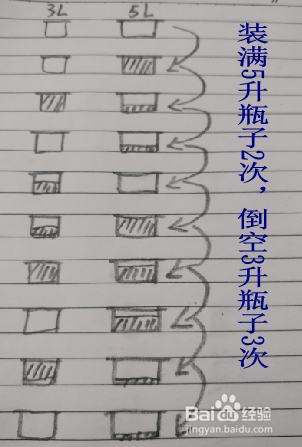 3L 5L
装满5升瓶子2次，倒空3升瓶子3次
Baidu经验
jingyan.baidu.com